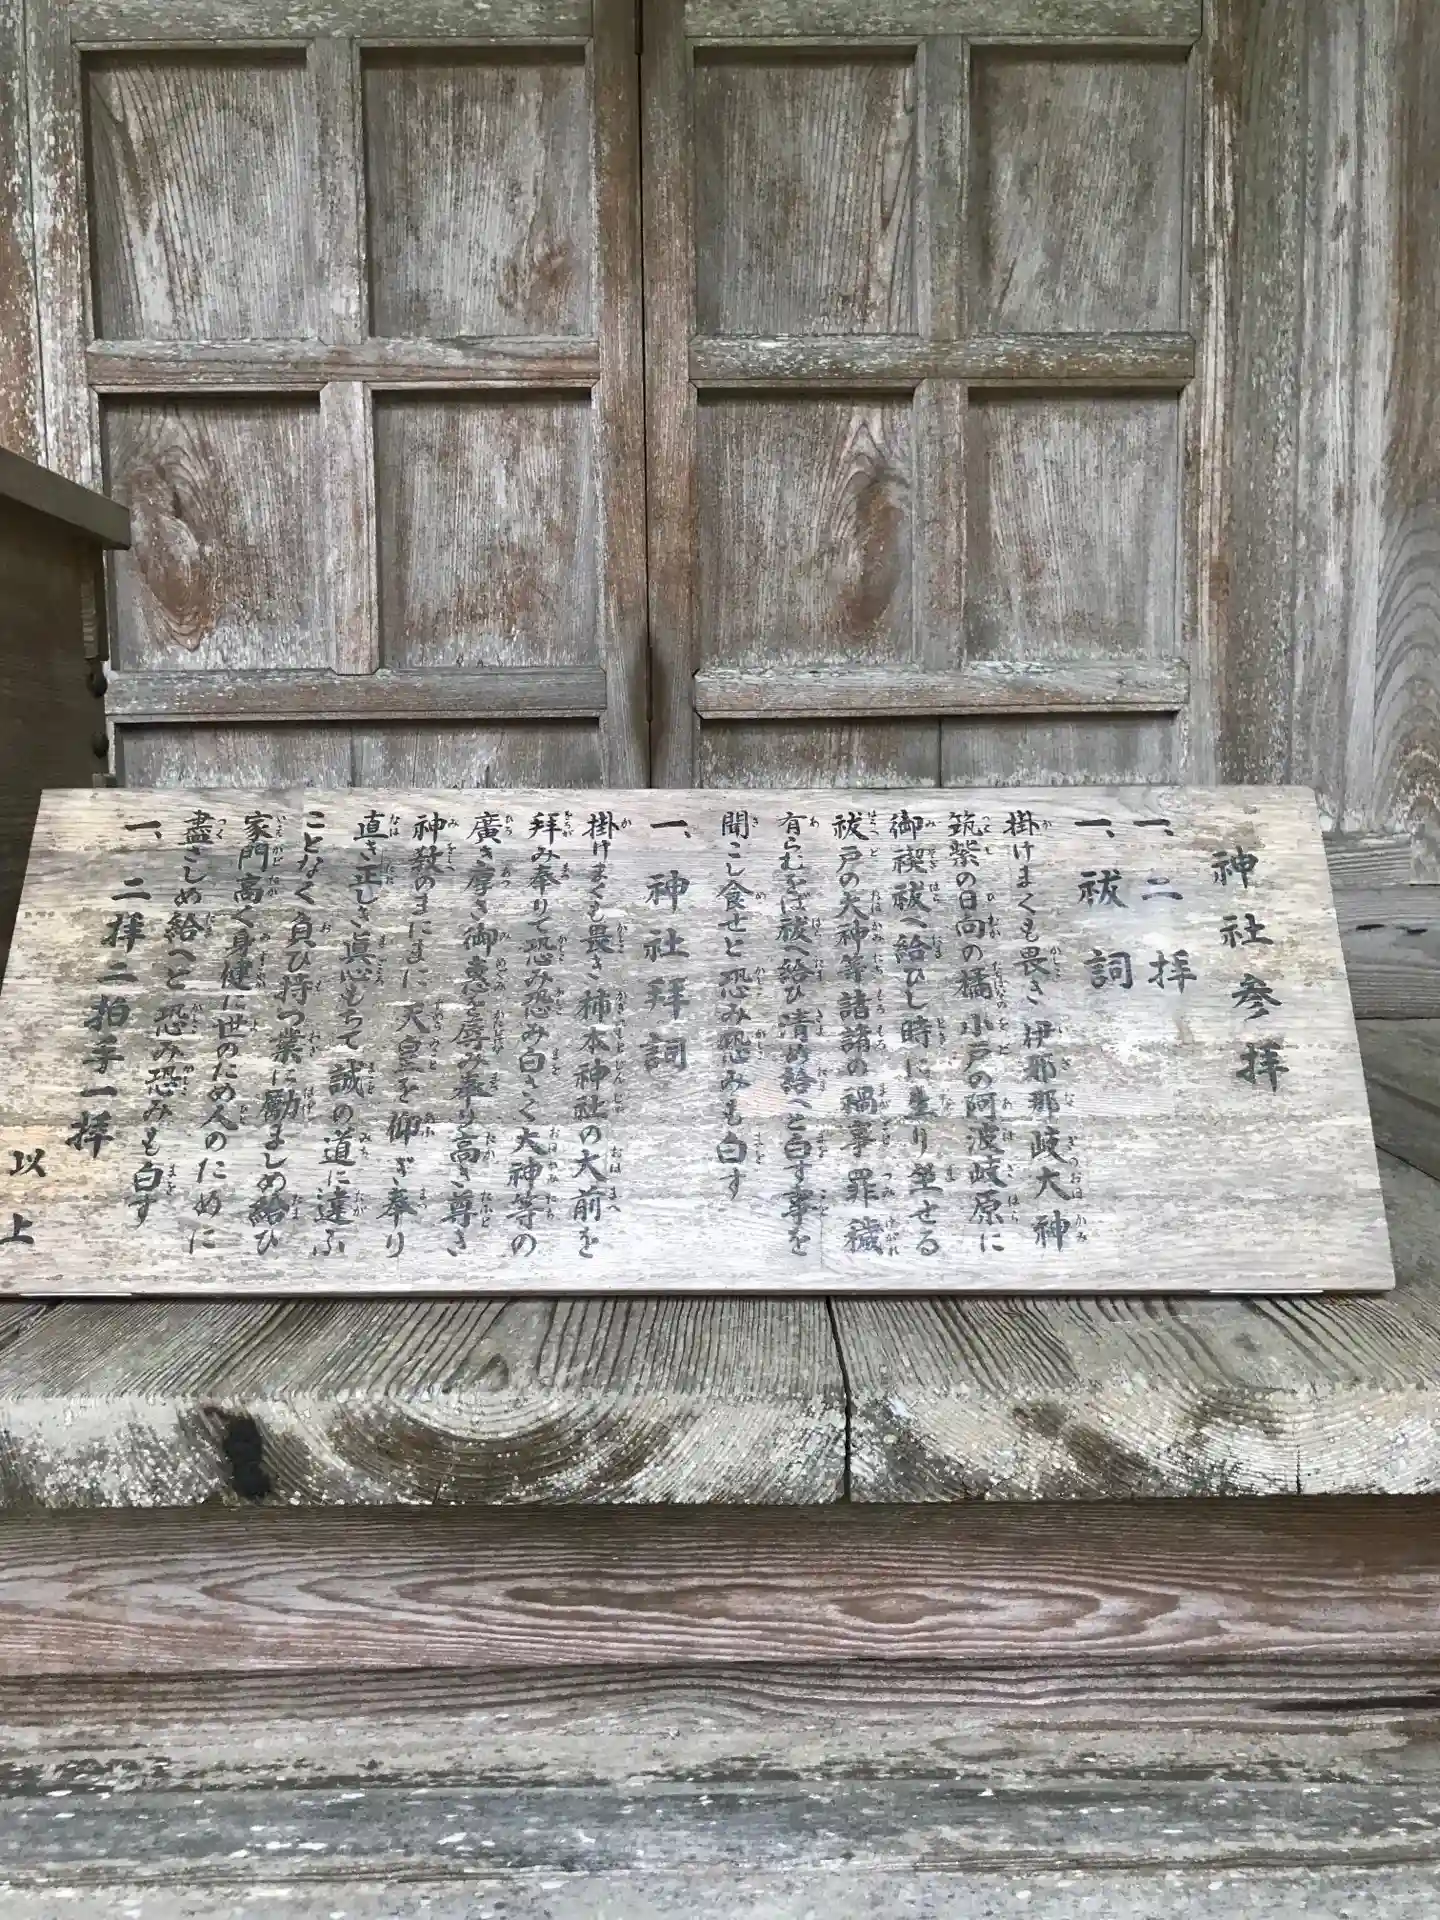 神社参拝
一、二拝
一、祓詞
掛けまくも畏き 伊邪那岐大神
筑紫の日向の橘小戸の阿波岐原に
御禊祓へ給ひし時に生り坐せる
祓戸の大神等諸諸の禍事罪穢
有らむをば祓へ給ひ清め給へと白す事を
聞こし食せと恐み恐みも白す
一、神社拝詞
掛けまくも畏き柿本神社の大前を
拝み奉りて恐み恐み白さく大神等の
廣き厚き御恵を辱み奉り高き尊き
神教のまにまに 天皇を仰ぎ奉り
直き正しき真心もちて誠の道に違ふ
ことなく負ひ持つ業に励ましめ給ひ
家門高く身健に世のため人のために
盡さしめ給へと恐み恐みも白す
一、二拝二拍手一拝
以上